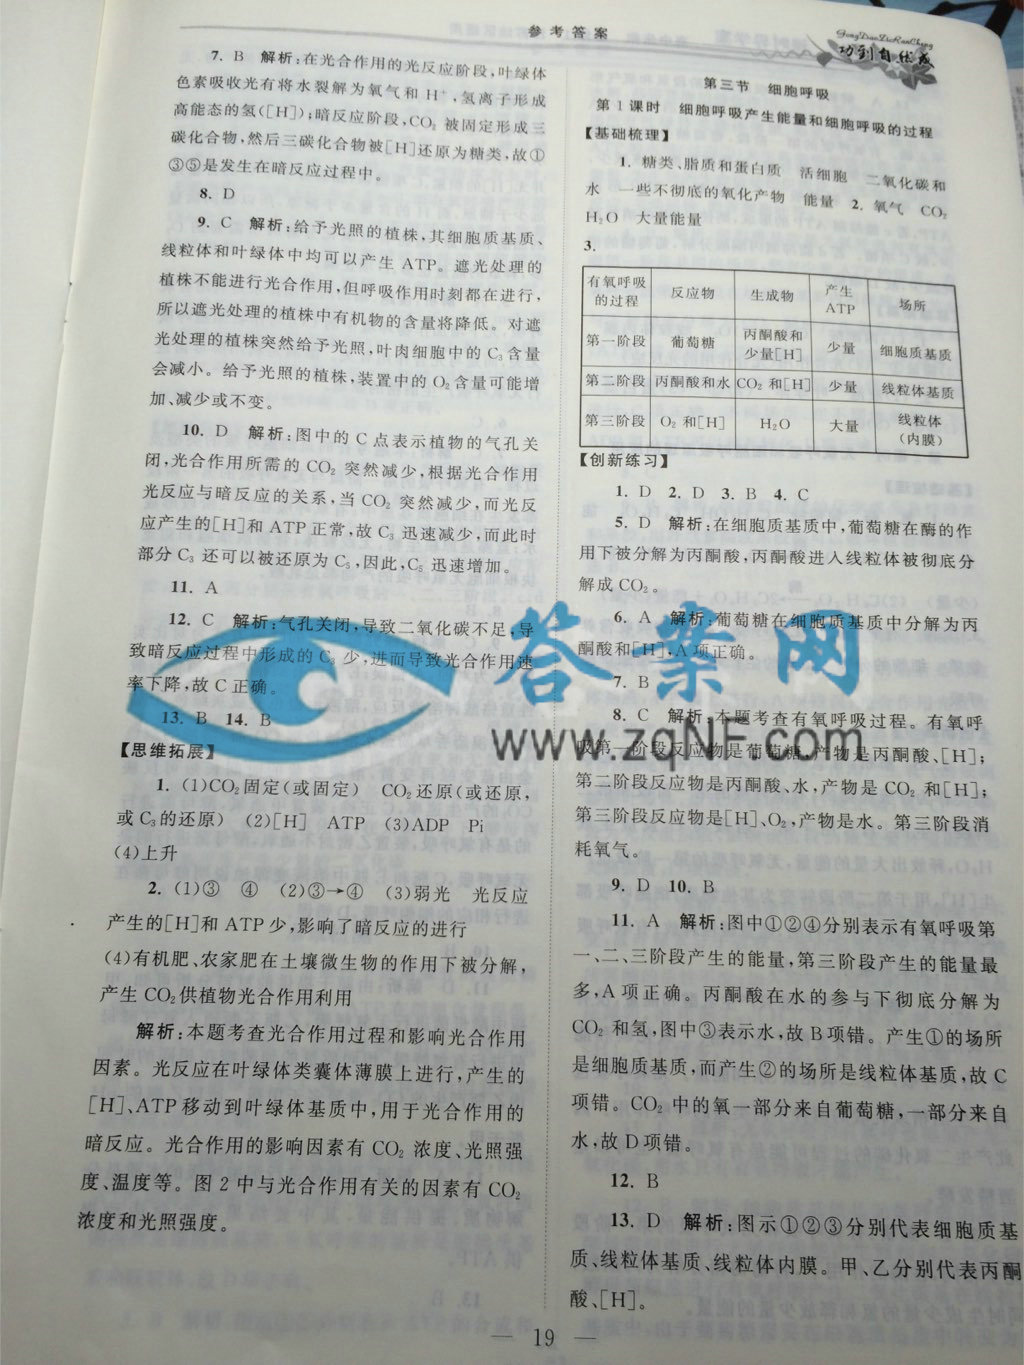 参考答案
GongDaoZiRanCheng
功到自然成
7. B 解析:在光合作用的光反应阶段,叶绿体
色素吸收光有将水裂解为氧气和 H⁺,氢离子形成
高能态的氢([H]);暗反应阶段,CO₂ 被固定形成三
碳化合物,然后三碳化合物被[H]还原为糖类,故①
③⑤是发生在暗反应过程中。
8. D
9. C 解析:给予光照的植株,其细胞质基质、
线粒体和叶绿体中均可以产生 ATP。遮光处理的
植株不能进行光合作用,但呼吸作用时刻都在进行,
所以遮光处理的植株中有机物的含量将降低。对遮
光处理的植株突然给予光照,叶肉细胞中的 C₃ 含量
会减小。给予光照的植株,装置中的 O₂ 含量可能增
加、减少或不变。
10. D 解析:图中的 C 点表示植物的气孔关
闭,光合作用所需的 CO₂ 突然减少,根据光合作用
光反应与暗反应的关系,当 CO₂ 突然减少,而光反
应产生的[H]和 ATP 正常,故 C₃ 迅速减少,而此时
部分 C₃ 还可以被还原为 C₅,因此,C₅ 迅速增加。
11. A
12. C 解析:气孔关闭,导致二氧化碳不足,导
致暗反应过程中形成的 C₃ 少,进而导致光合作用速
率下降,故 C 正确。
13. B 14. B
【思维拓展】
1. (1)CO₂固定(或固定) CO₂还原(或还原,
或 C₃的还原) (2)[H] ATP (3)ADP Pi
(4)上升
2. (1)③ ④ (2)③→④ (3)弱光 光反应
产生的[H]和 ATP 少,影响了暗反应的进行
(4)有机肥、农家肥在土壤微生物的作用下被分解,
产生 CO₂供植物光合作用利用
解析:本题考查光合作用过程和影响光合作用
因素。光反应在叶绿体类囊体薄膜上进行,产生的
[H]、ATP 移动到叶绿体基质中,用于光合作用的
暗反应。光合作用的影响因素有 CO₂ 浓度、光照强
度、温度等。图 2 中与光合作用有关的因素有 CO₂
浓度和光照强度。
第三节 细胞呼吸
第 1 课时 细胞呼吸产生能量和细胞呼吸的过程
【基础梳理】
1. 糖类、脂质和蛋白质 活细胞 二氧化碳和
水 一些不彻底的氧化产物 能量 2. 氧气 CO₂
H₂O 大量能量
3.
有氧呼吸的过程 反应物 生成物 产生ATP 场所
第一阶段 葡萄糖 丙酮酸和少量[H] 少量 细胞质基质
第二阶段 丙酮酸和水 CO₂ 和[H] 少量 线粒体基质
第三阶段 O₂ 和[H] H₂O 大量 线粒体(内膜)
【创新练习】
1. D 2. D 3. B 4. C
5. D 解析:在细胞质基质中,葡萄糖在酶的作
用下被分解为丙酮酸,丙酮酸进入线粒体被彻底分
解成 CO₂。
6. A 解析:葡萄糖在细胞质基质中分解为丙
酮酸和[H],A 项正确。
7. B
8. C 解析:本题考查有氧呼吸过程。有氧呼
吸第一阶段反应物是葡萄糖,产物是丙酮酸、[H];
第二阶段反应物是丙酮酸、水,产物是 CO₂ 和[H];
第三阶段反应物是[H]、O₂,产物是水。第三阶段消
耗氧气。
9. D 10. B
11. A 解析:图中①②④分别表示有氧呼吸第
一、二、三阶段产生的能量,第三阶段产生的能量最
多,A 项正确。丙酮酸在水的参与下彻底分解为
CO₂ 和氢,图中③表示水,故 B 项错。产生①的场所
是细胞质基质,而产生②的场所是线粒体基质,故 C
项错。CO₂ 中的氧一部分来自葡萄糖,一部分来自
水,故 D 项错。
12. B
13. D 解析:图示①②③分别代表细胞质基
质、线粒体基质、线粒体内膜。甲、乙分别代表丙酮
酸、[H]。
答案网
www.zqNF.com
— 19 —